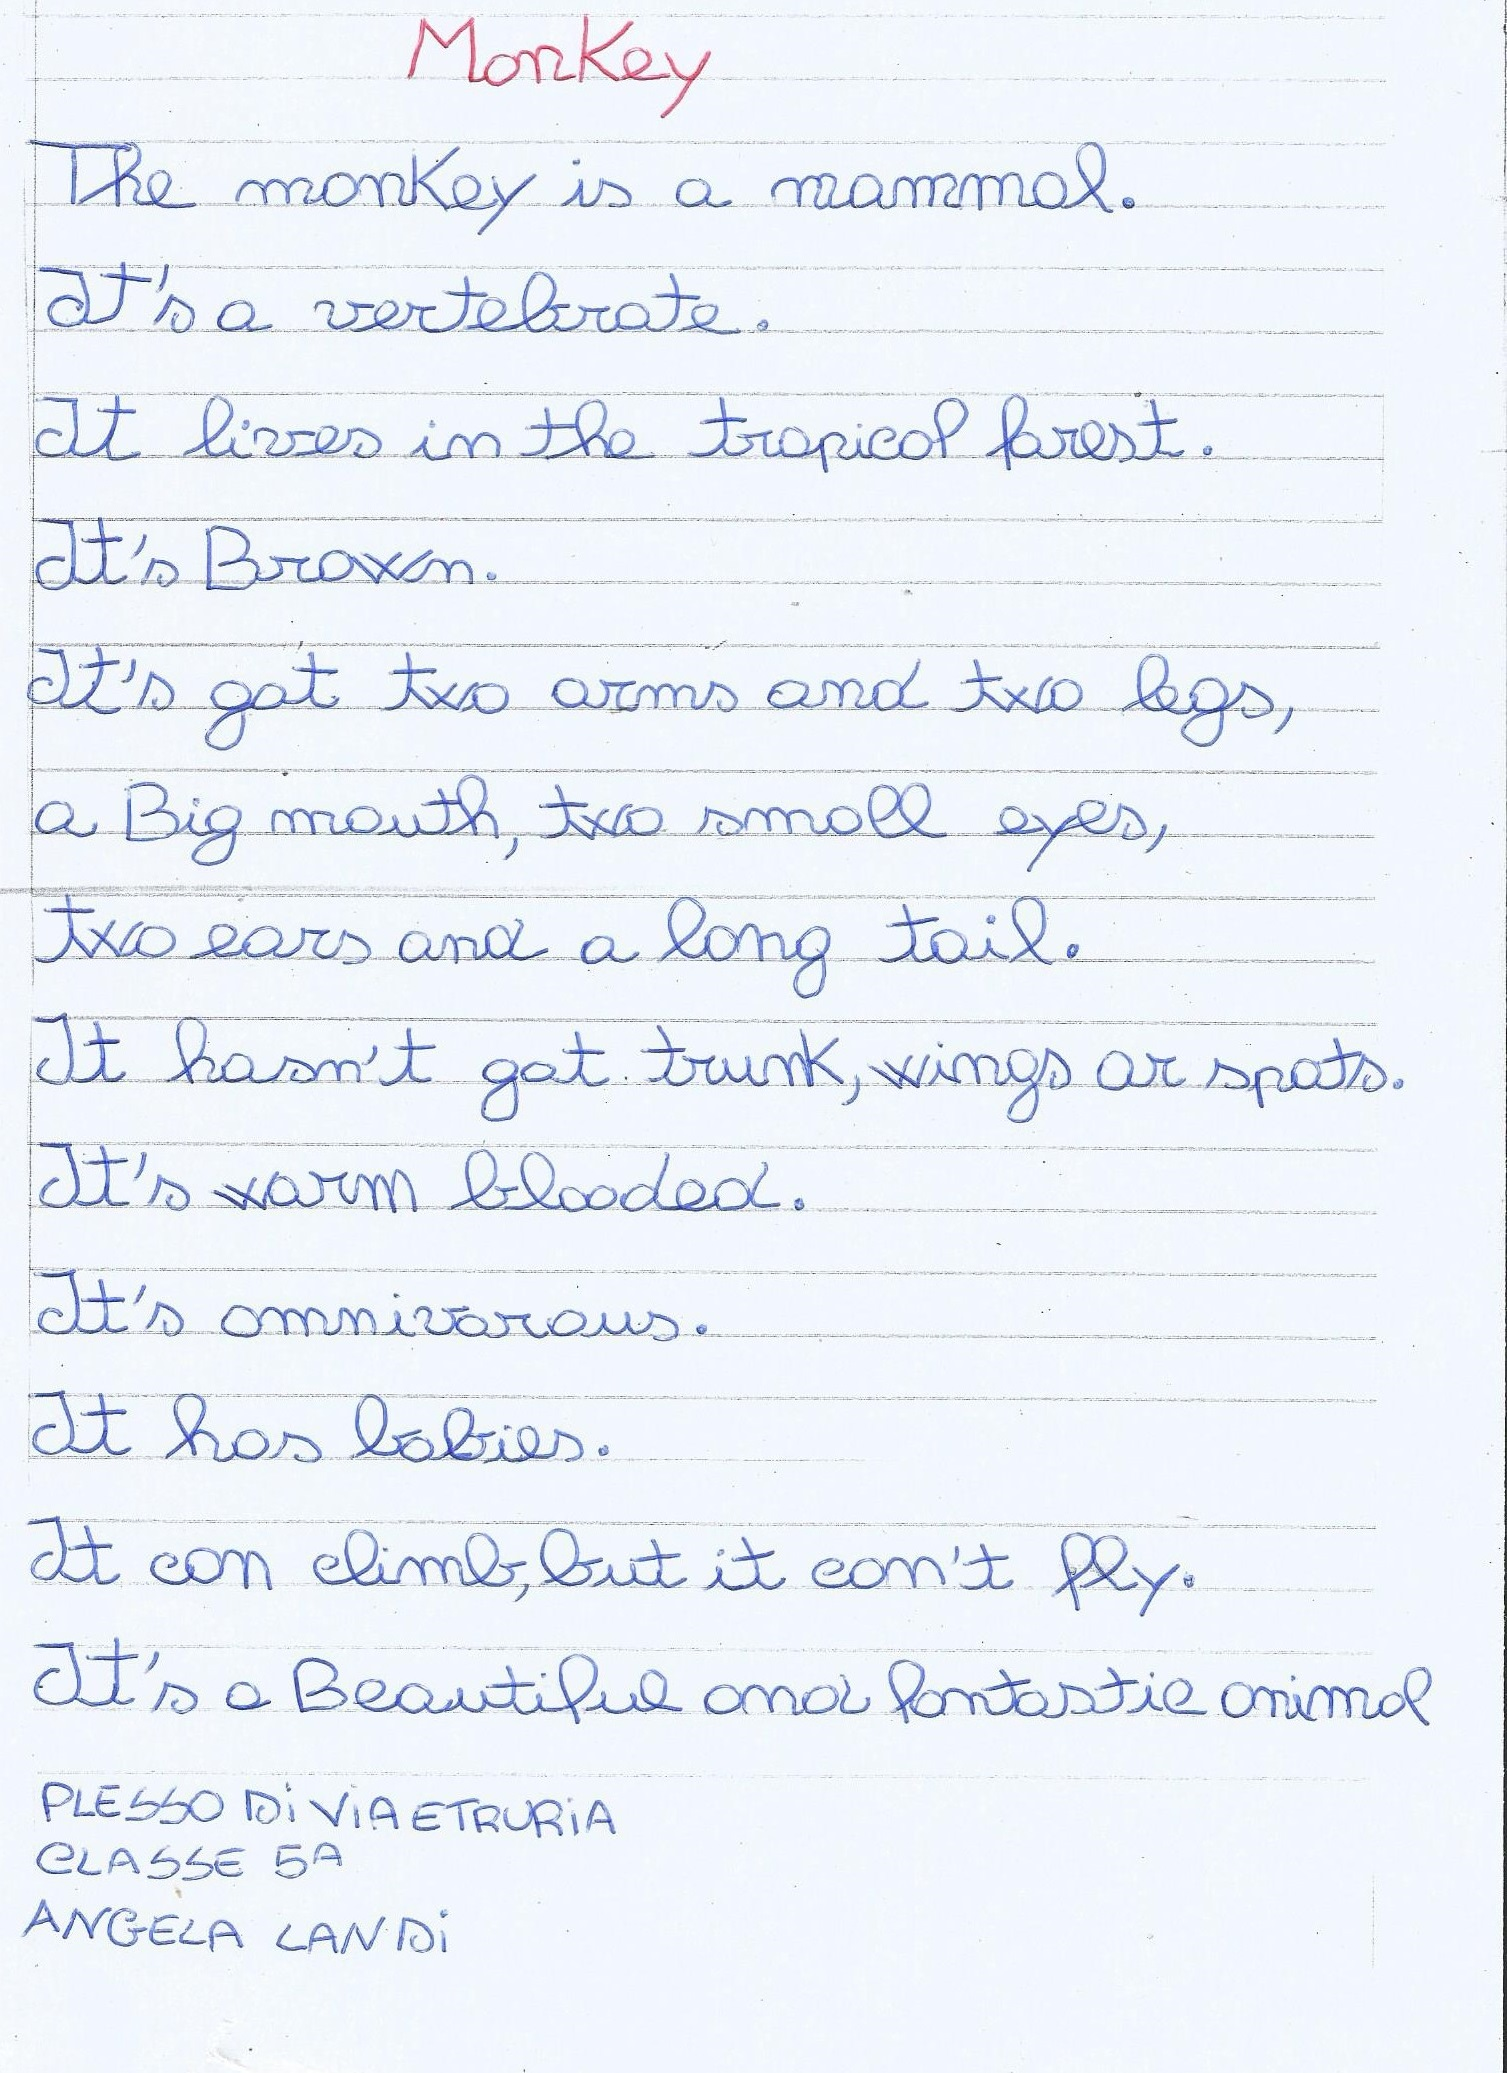 Monkey
The monkey is a mammal.
It's a vertebrate.
It lives in the tropical forest.
It's Brown.
It's got two arms and two legs,
a Big mouth, two small eyes,
two ears and a long tail.
It hasn't got trunk, wings or spots.
It's warm blooded.
It's omnivorous.
It has babies.
It can climb, but it can't fly.
It's a Beautiful and fantastic animal
PLESSO Di ViA ETRURiA
CLASSE 5A
ANGELA LANDi